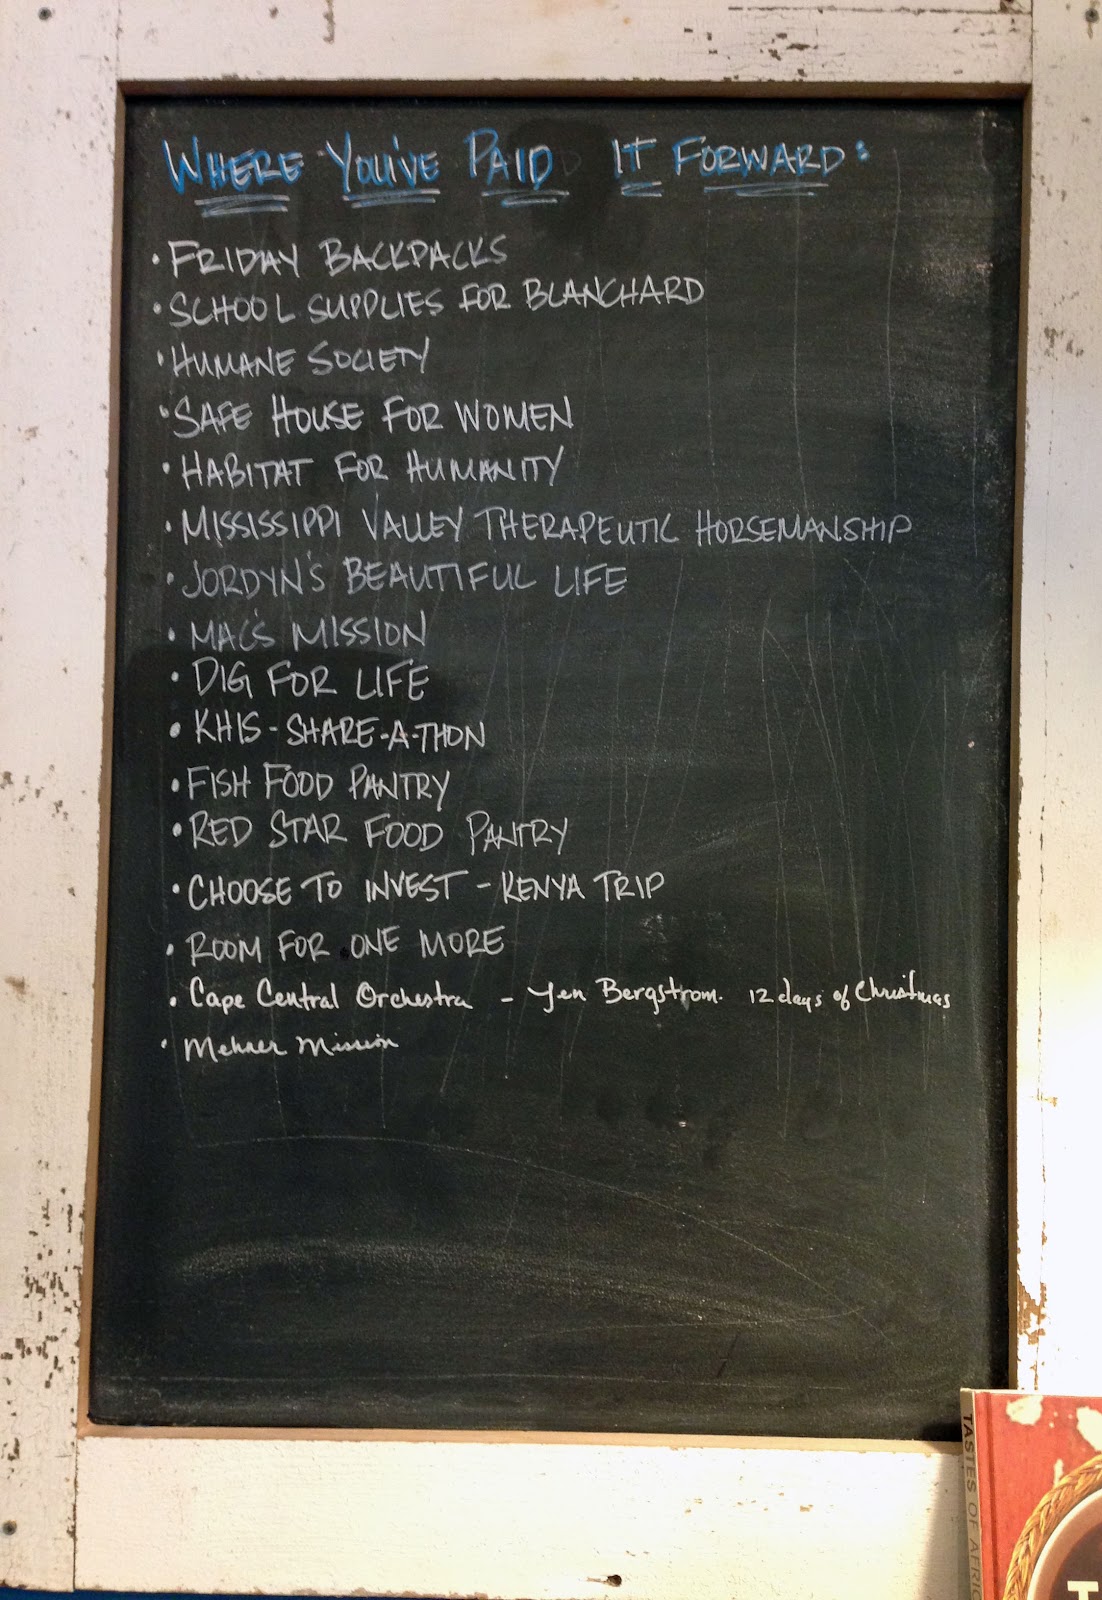 WHERE YOU'VE PAID IT FORWARD:
• FRIDAY BACKPACKS
• SCHOOL SUPPLIES FOR BLANCHARD
• HUMANE SOCIETY
• SAFE HOUSE FOR WOMEN
• HABITAT FOR HUMANITY
• MISSISSIPPI VALLEY THERAPEUTIC HORSEMANSHIP
• JORDYN'S BEAUTIFUL LIFE
• MAC'S MISSION
• DIG FOR LIFE
• KHIS - SHARE-A-THON
• FISH FOOD PANTRY
• RED STAR FOOD PANTRY
• CHOOSE TO INVEST - KENYA TRIP
• ROOM FOR ONE MORE
• Cape Central Orchestra - Jen Bergstrom. 12 days of Christmas
• Mehner Mission
TASTES OF AFRIC
T